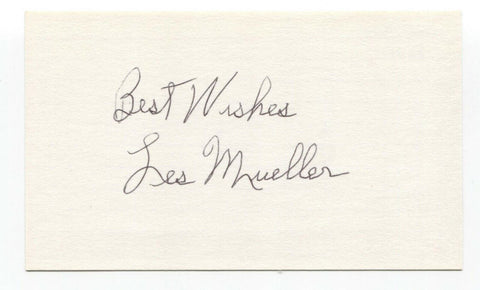 Best Wishes
Les Mueller